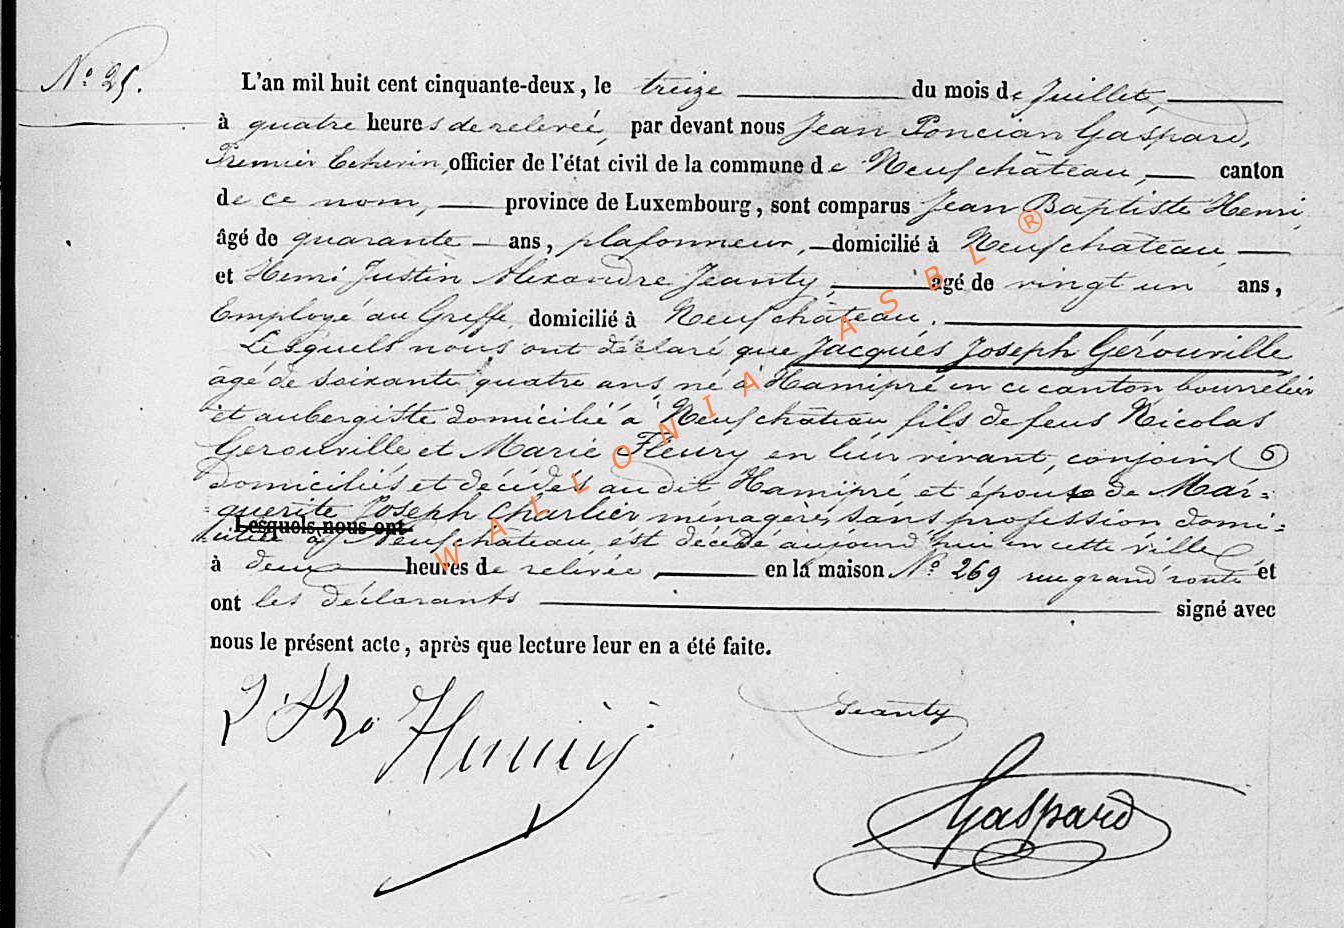 N.o 25.
L'an mil huit cent cinquante-deux, le treize du mois de Juillet,
à quatre heures de relevée, par devant nous Jean Poncian Gaspard,
Premier Echevin, officier de l'état civil de la commune de Neufchâteau, canton
de ce nom, province de Luxembourg, sont comparus Jean Baptiste Henri,
âgé de quarante ans, plafonneur, domicilié à Neufchâteau,
et Henri Justin Alexandre Jeanty, agé de vingt un ans,
Employé au Greffe, domicilié à Neufchâteau.
Lesquels nous ont déclaré que Jacques Joseph Gérouville
âgé de soixante quatre ans, né à Hamipré en ce canton bourrelier
et aubergiste domicilié à Neufchâteau fils de feus Nicolas
Gerouville et Marie Fleury en leur vivant, conjoints
domiciliés et décédés au dit Hamipré et époux de Mar=
guerite Joseph Charlier ménagère, sans profession domi=
Lesquels nous ont
ciliée à Neufchâteau, est décédé aujourd'hui en cette ville
à deux heures de relevée, en la maison N.o 269 rue grand route et
ont les déclarants signé avec
nous le présent acte, après que lecture leur en a été faite.
Jeanty
Gaspard
WALLONIA ASBL ®